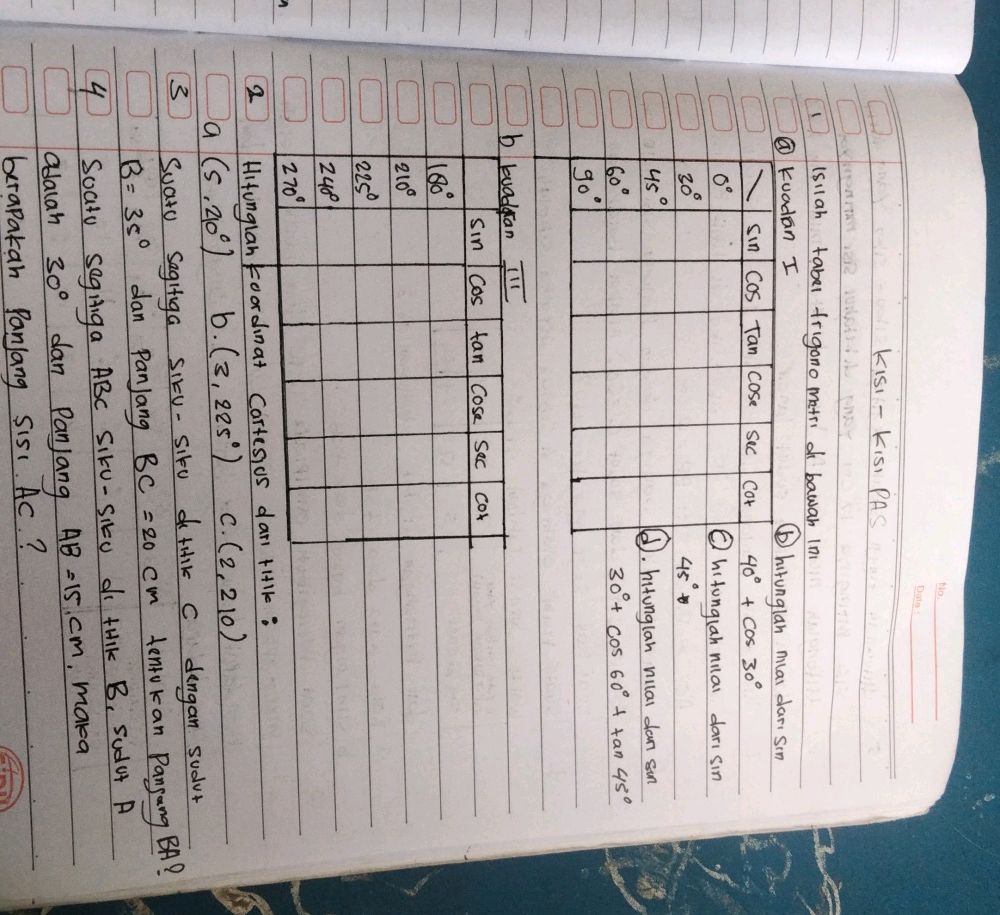 No.
Date:
KISI-KISI PAS
1 Isilah tabel trigono metri di bawah ini
a kuadran I
sin cos Tan cose sec cot
0°
30°
45°
60°
90°
b hitunglah nilai dari sin
40° + cos 30°
c hitunglah nilai dari sin
45°
d. hitunglah nilai dari sin
30° + cos 60° + tan 45°
b kuadran III
sin cos tan cose sec cot
180°
210°
225°
240°
270°
2 Hitunglah koordinat cartesius dari titik :
a (5, 20°) b. (3, 225°) c. (2, 210)
3 Suatu segitiga siku-siku di titik C dengan sudut
B = 35° dan panjang BC = 20 cm tentukan panjang BA?
4 Suatu segitiga ABC siku-siku di titik B, sudut A
alalah 30° dan panjang AB = 15 cm, maka
berapakah panjang sisi AC ?